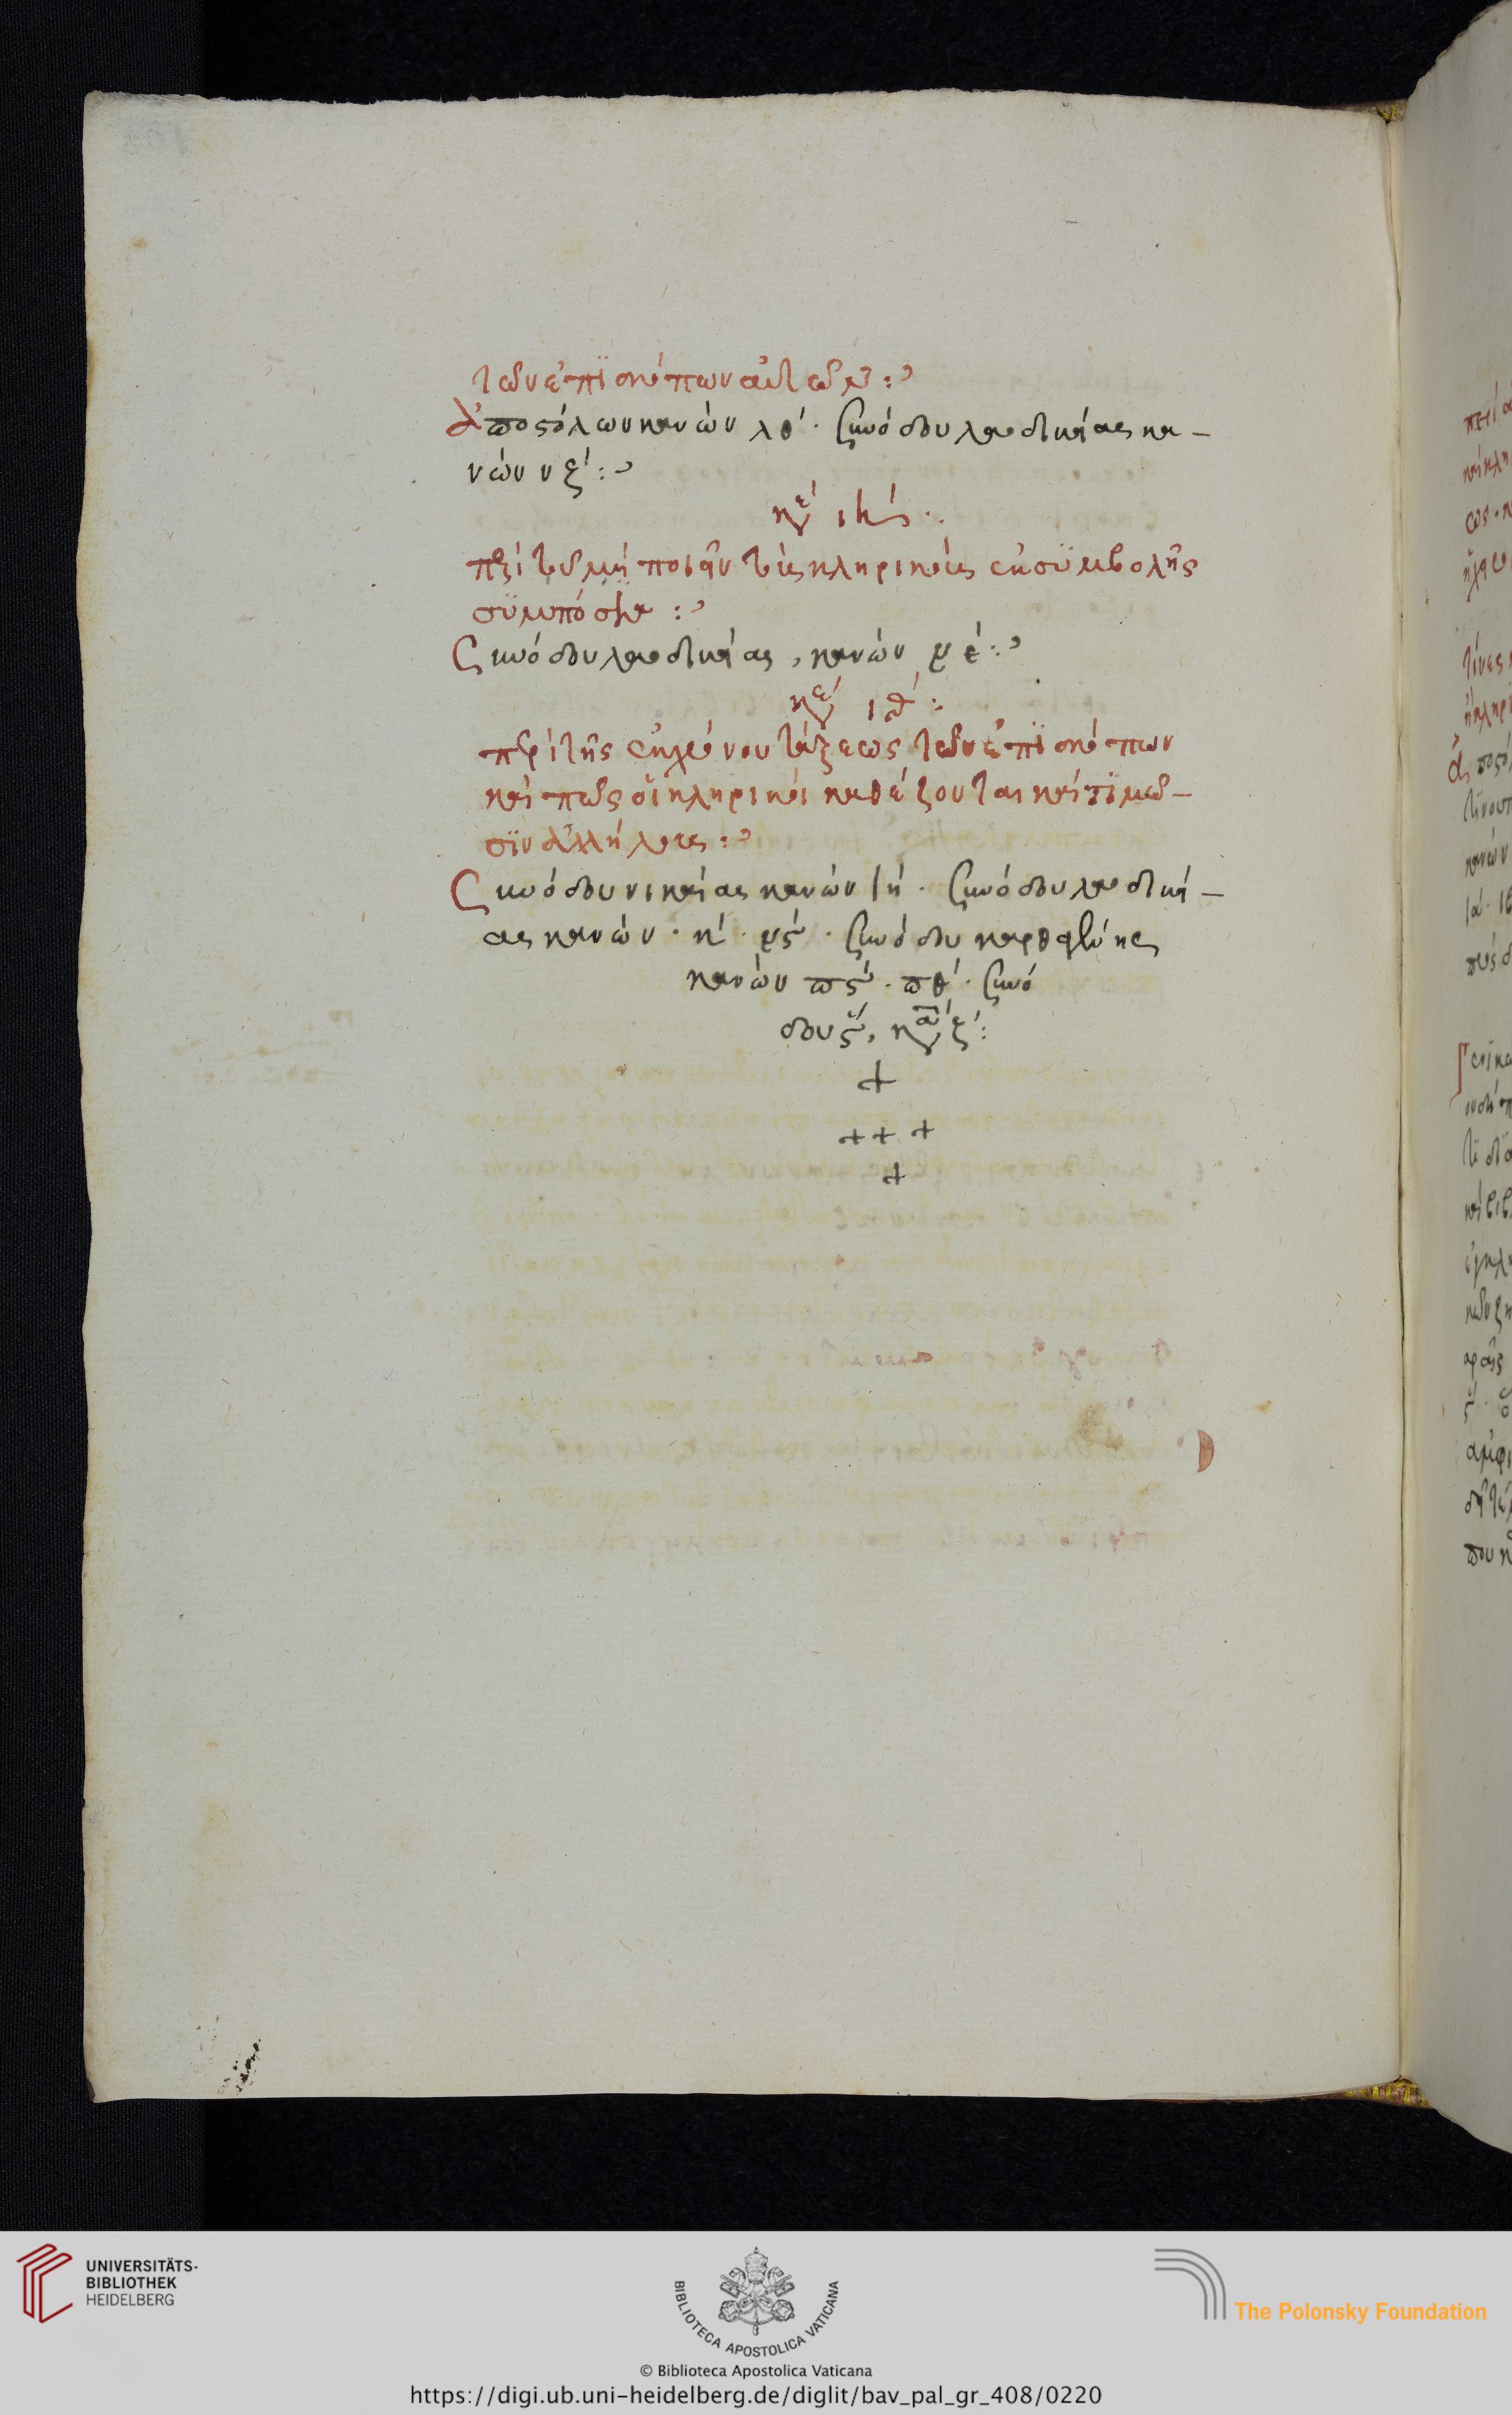 τῶν ἐπϊσκόπων αὐτῶν :
Ἀποστόλων κανὼν λθ΄. Συνόδου λαοδικείας κα-
νὼν νξ΄ :
κεφ΄ ιη΄.
περὶ τοῦ μὴ ποιεῖν τοὺς κληρικοὺς ἐκ σϋμβολῆς
σϋμπόσια :
Συνόδου λαοδικείας, κανὼν νε΄ :
κεφ΄ ιθ΄ :
περὶ τῆς
τάξεως τῶν ἐπϊσκόπων
καὶ πῶς οἱ κληρικοὶ καθέζονται καὶ τϊμῶ-
σϊν ἀλλήλους :
Συνόδου νικαίας κανὼν ιη΄. Συνόδου λαοδικεί-
ας κανὼν. κ΄. νς΄. Συνόδου καρθαγένης
κανὼν πς΄. πθ΄. Συνό
δου ς΄, καν ζ΄ :
UNIVERSITÄTS-
BIBLIOTHEK
HEIDELBERG
BIBLIOTECA APOSTOLICA VATICANA
The Polonsky Foundation
© Biblioteca Apostolica Vaticana
https://digi.ub.uni-heidelberg.de/diglit/bav_pal_gr_408/0220